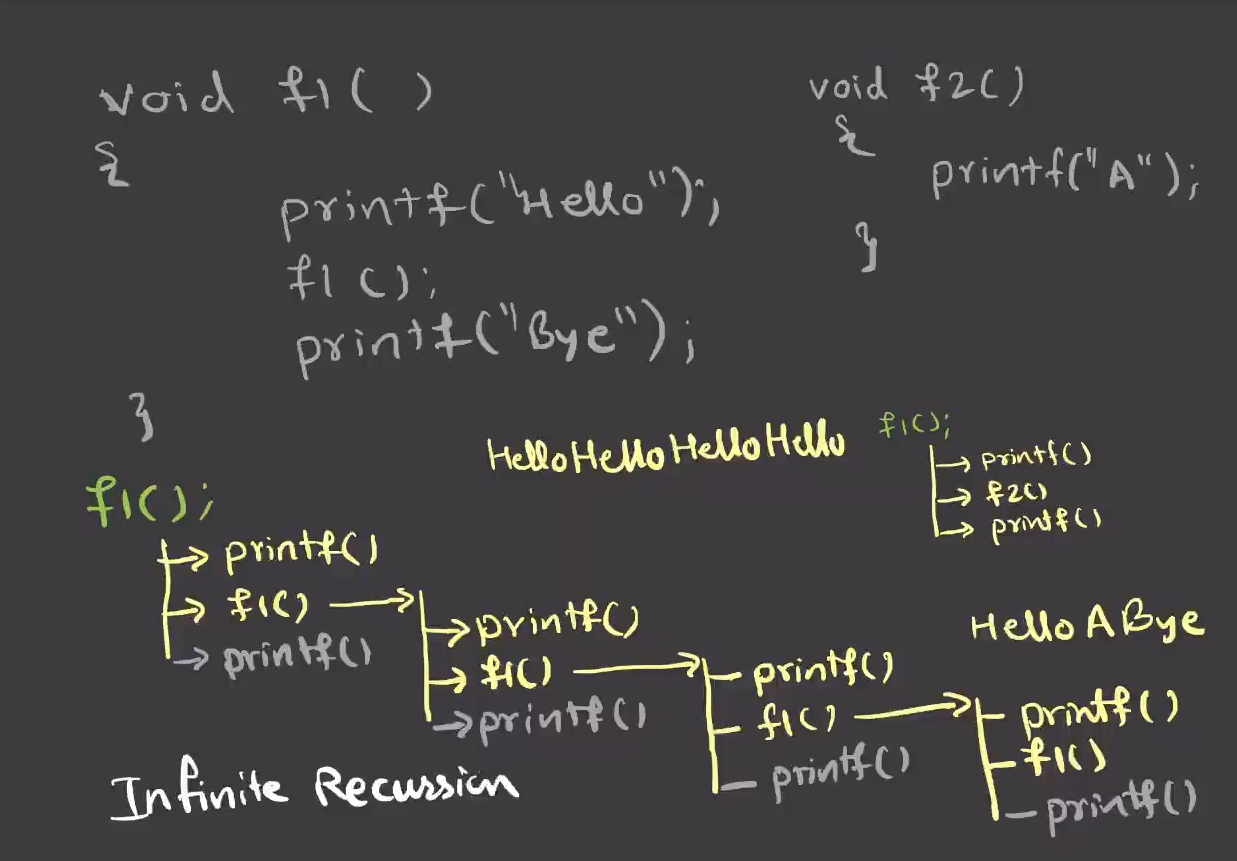 void f1( )
{
printf("Hello");
f1();
printf("Bye");
}
void f2()
{
printf("A");
}
HelloHelloHelloHello
f1();
printf()
f2()
printf()
HelloABye
f1();
printf()
f1()
printf()
printf()
f1()
printf()
printf()
f1()
printf()
printf()
f1()
printf()
Infinite Recussion